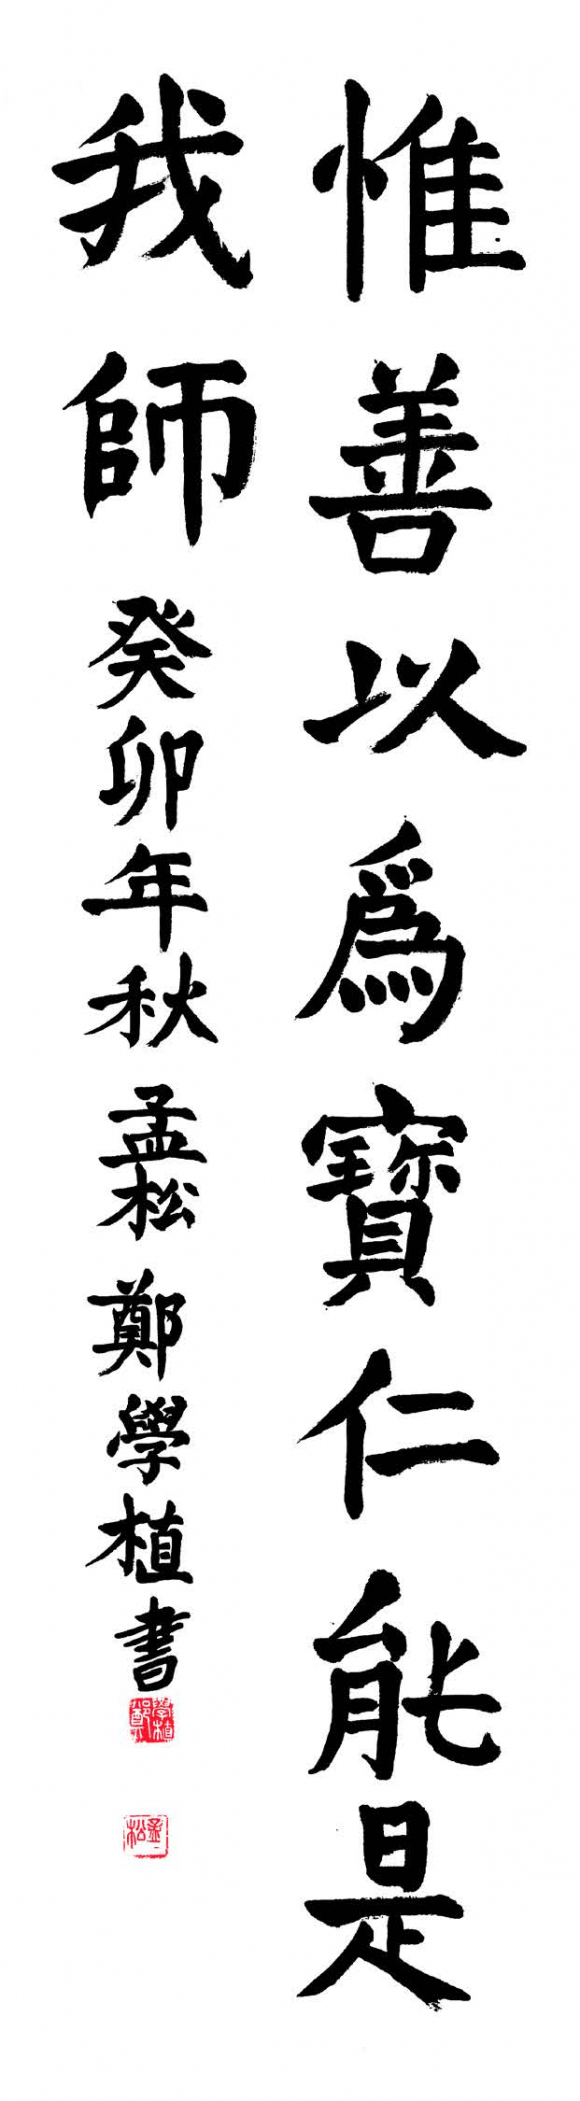 惟善以爲寶仁能是
我師 癸卯年秋 孟松 鄭學植書
學植鄭
孟松